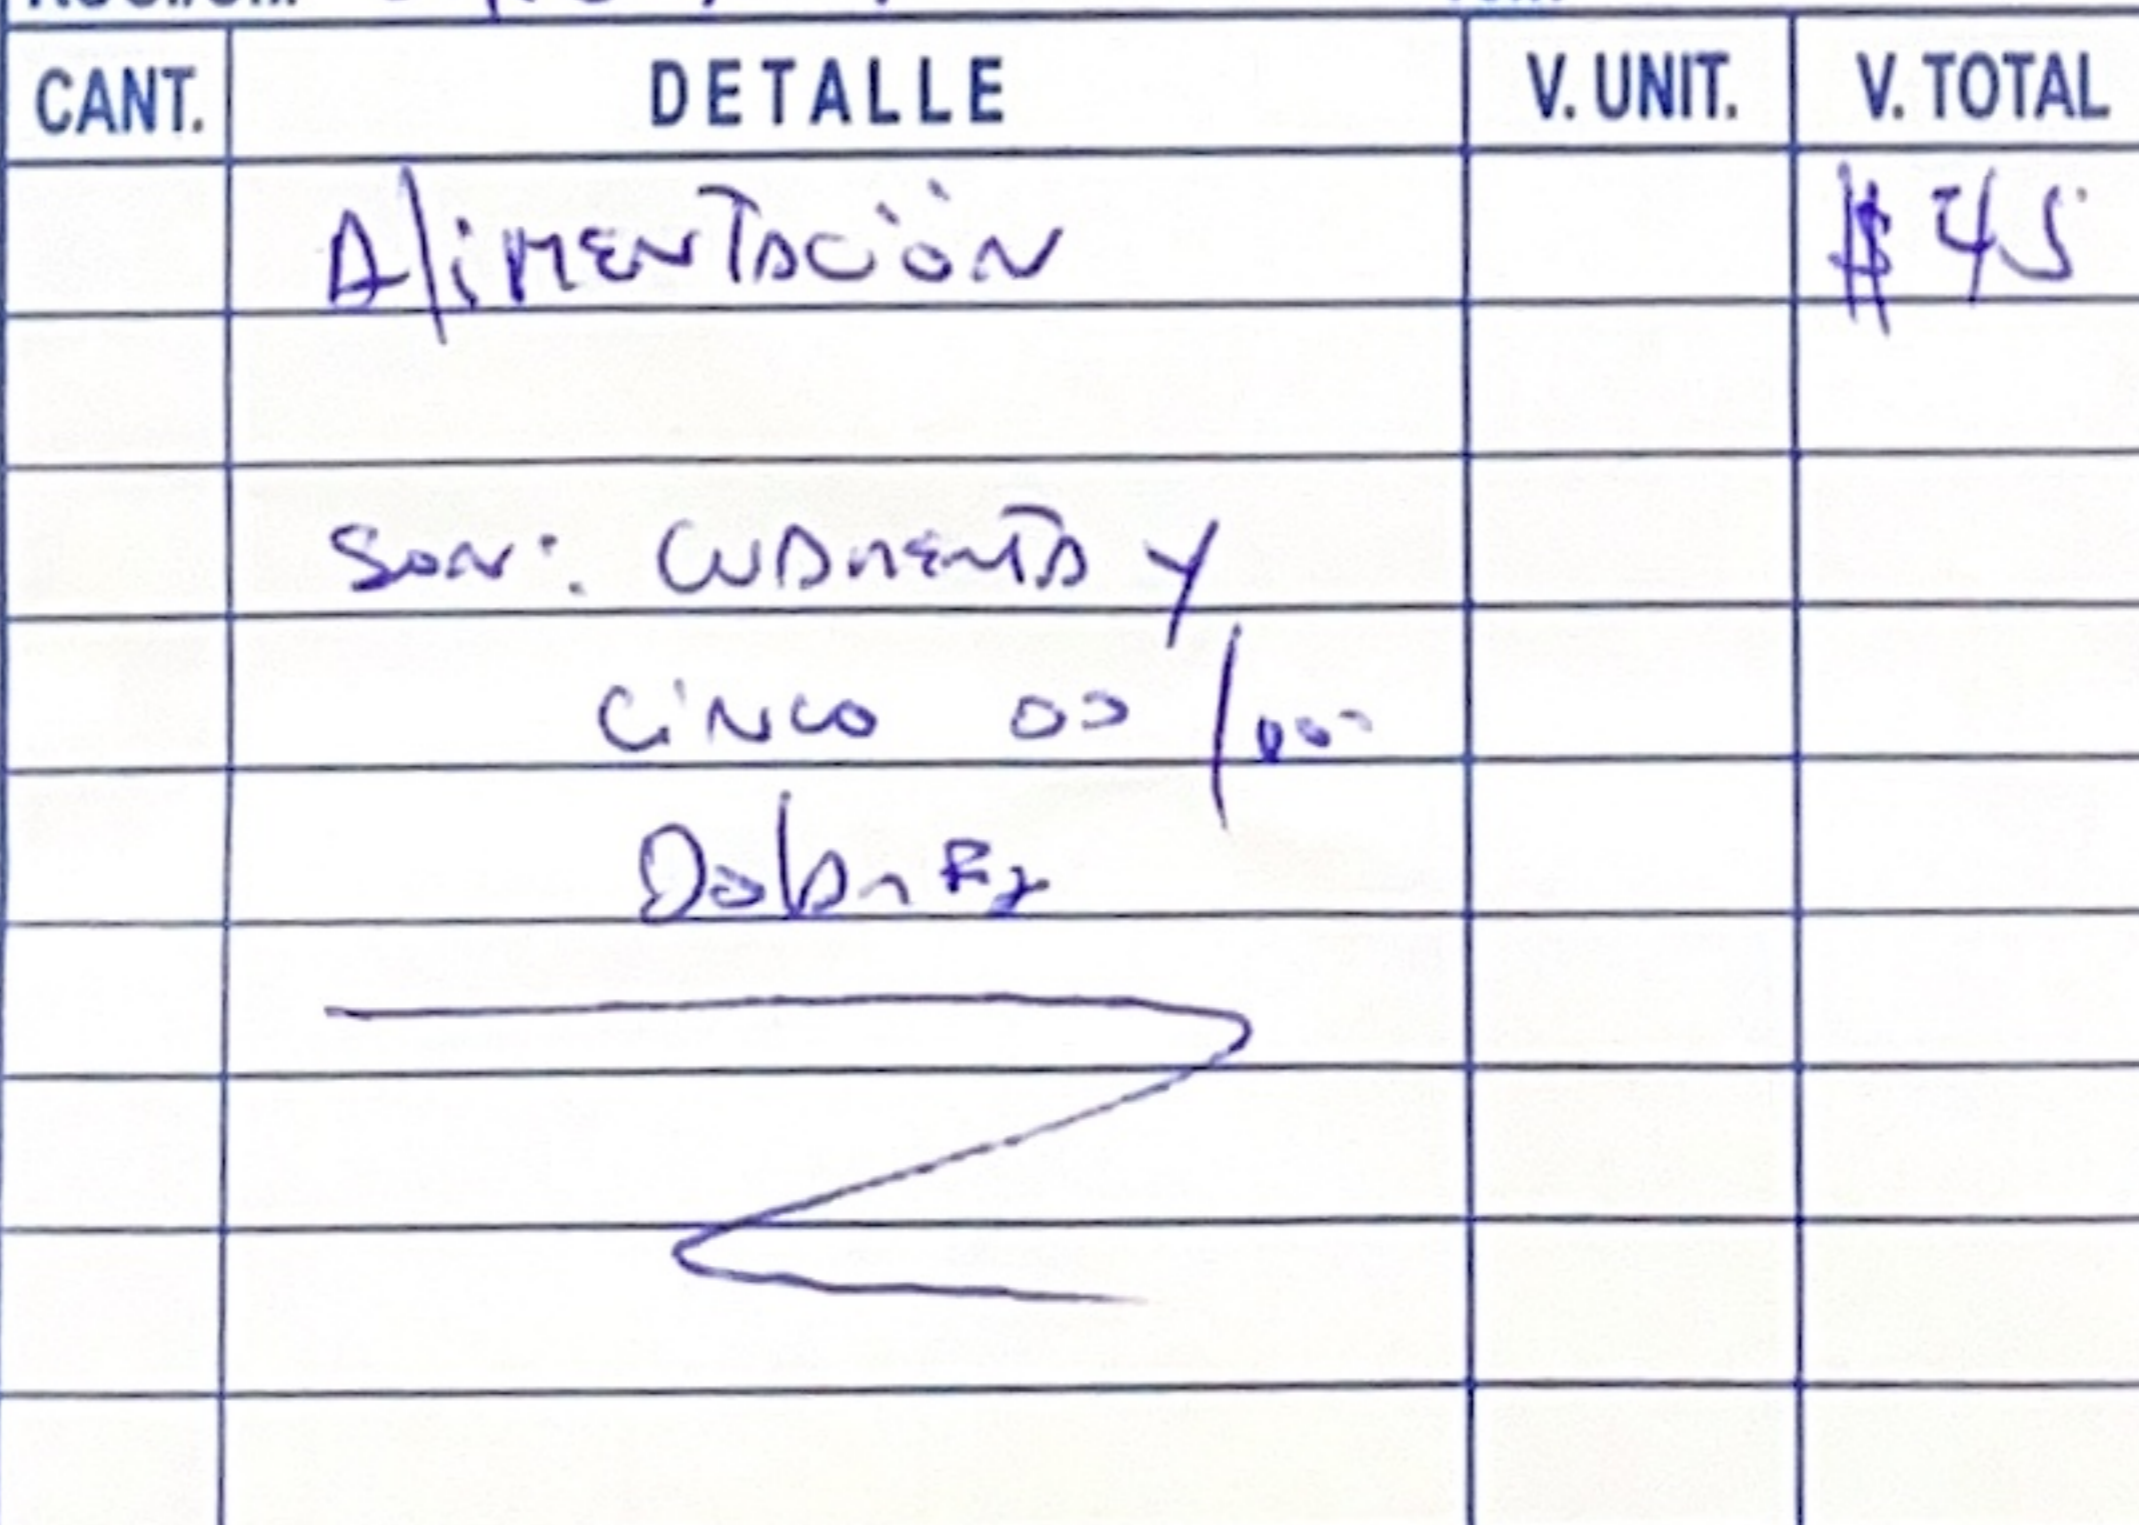 CANT. DETALLE V. UNIT. V. TOTAL
Alimentación $ 45
Son: Cuarenta y
Cinco 00/100
Dolares